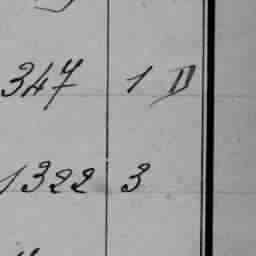 347 1 D
1322 3